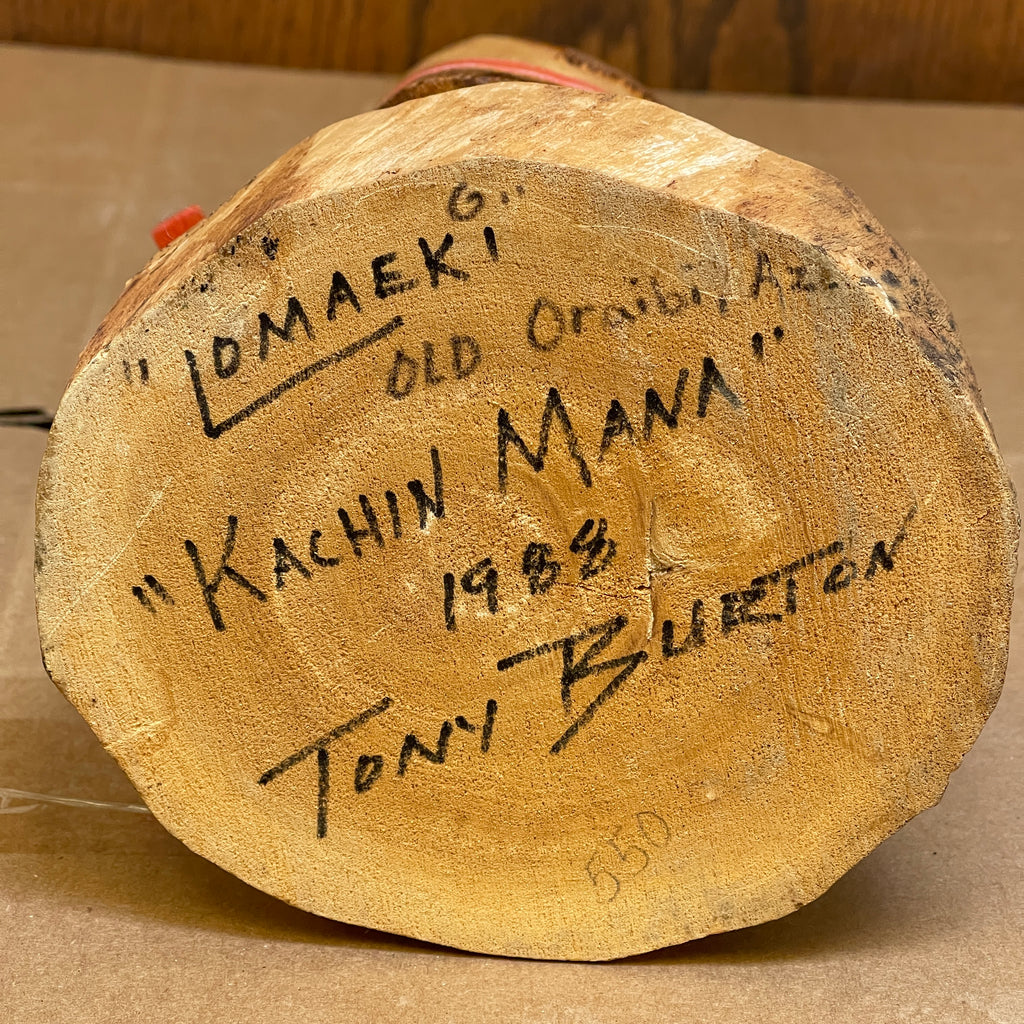 "LOMAEKI G."
OLD Oraibi, Az.
"KACHIN MANA"
1988
TONY BURTON
550